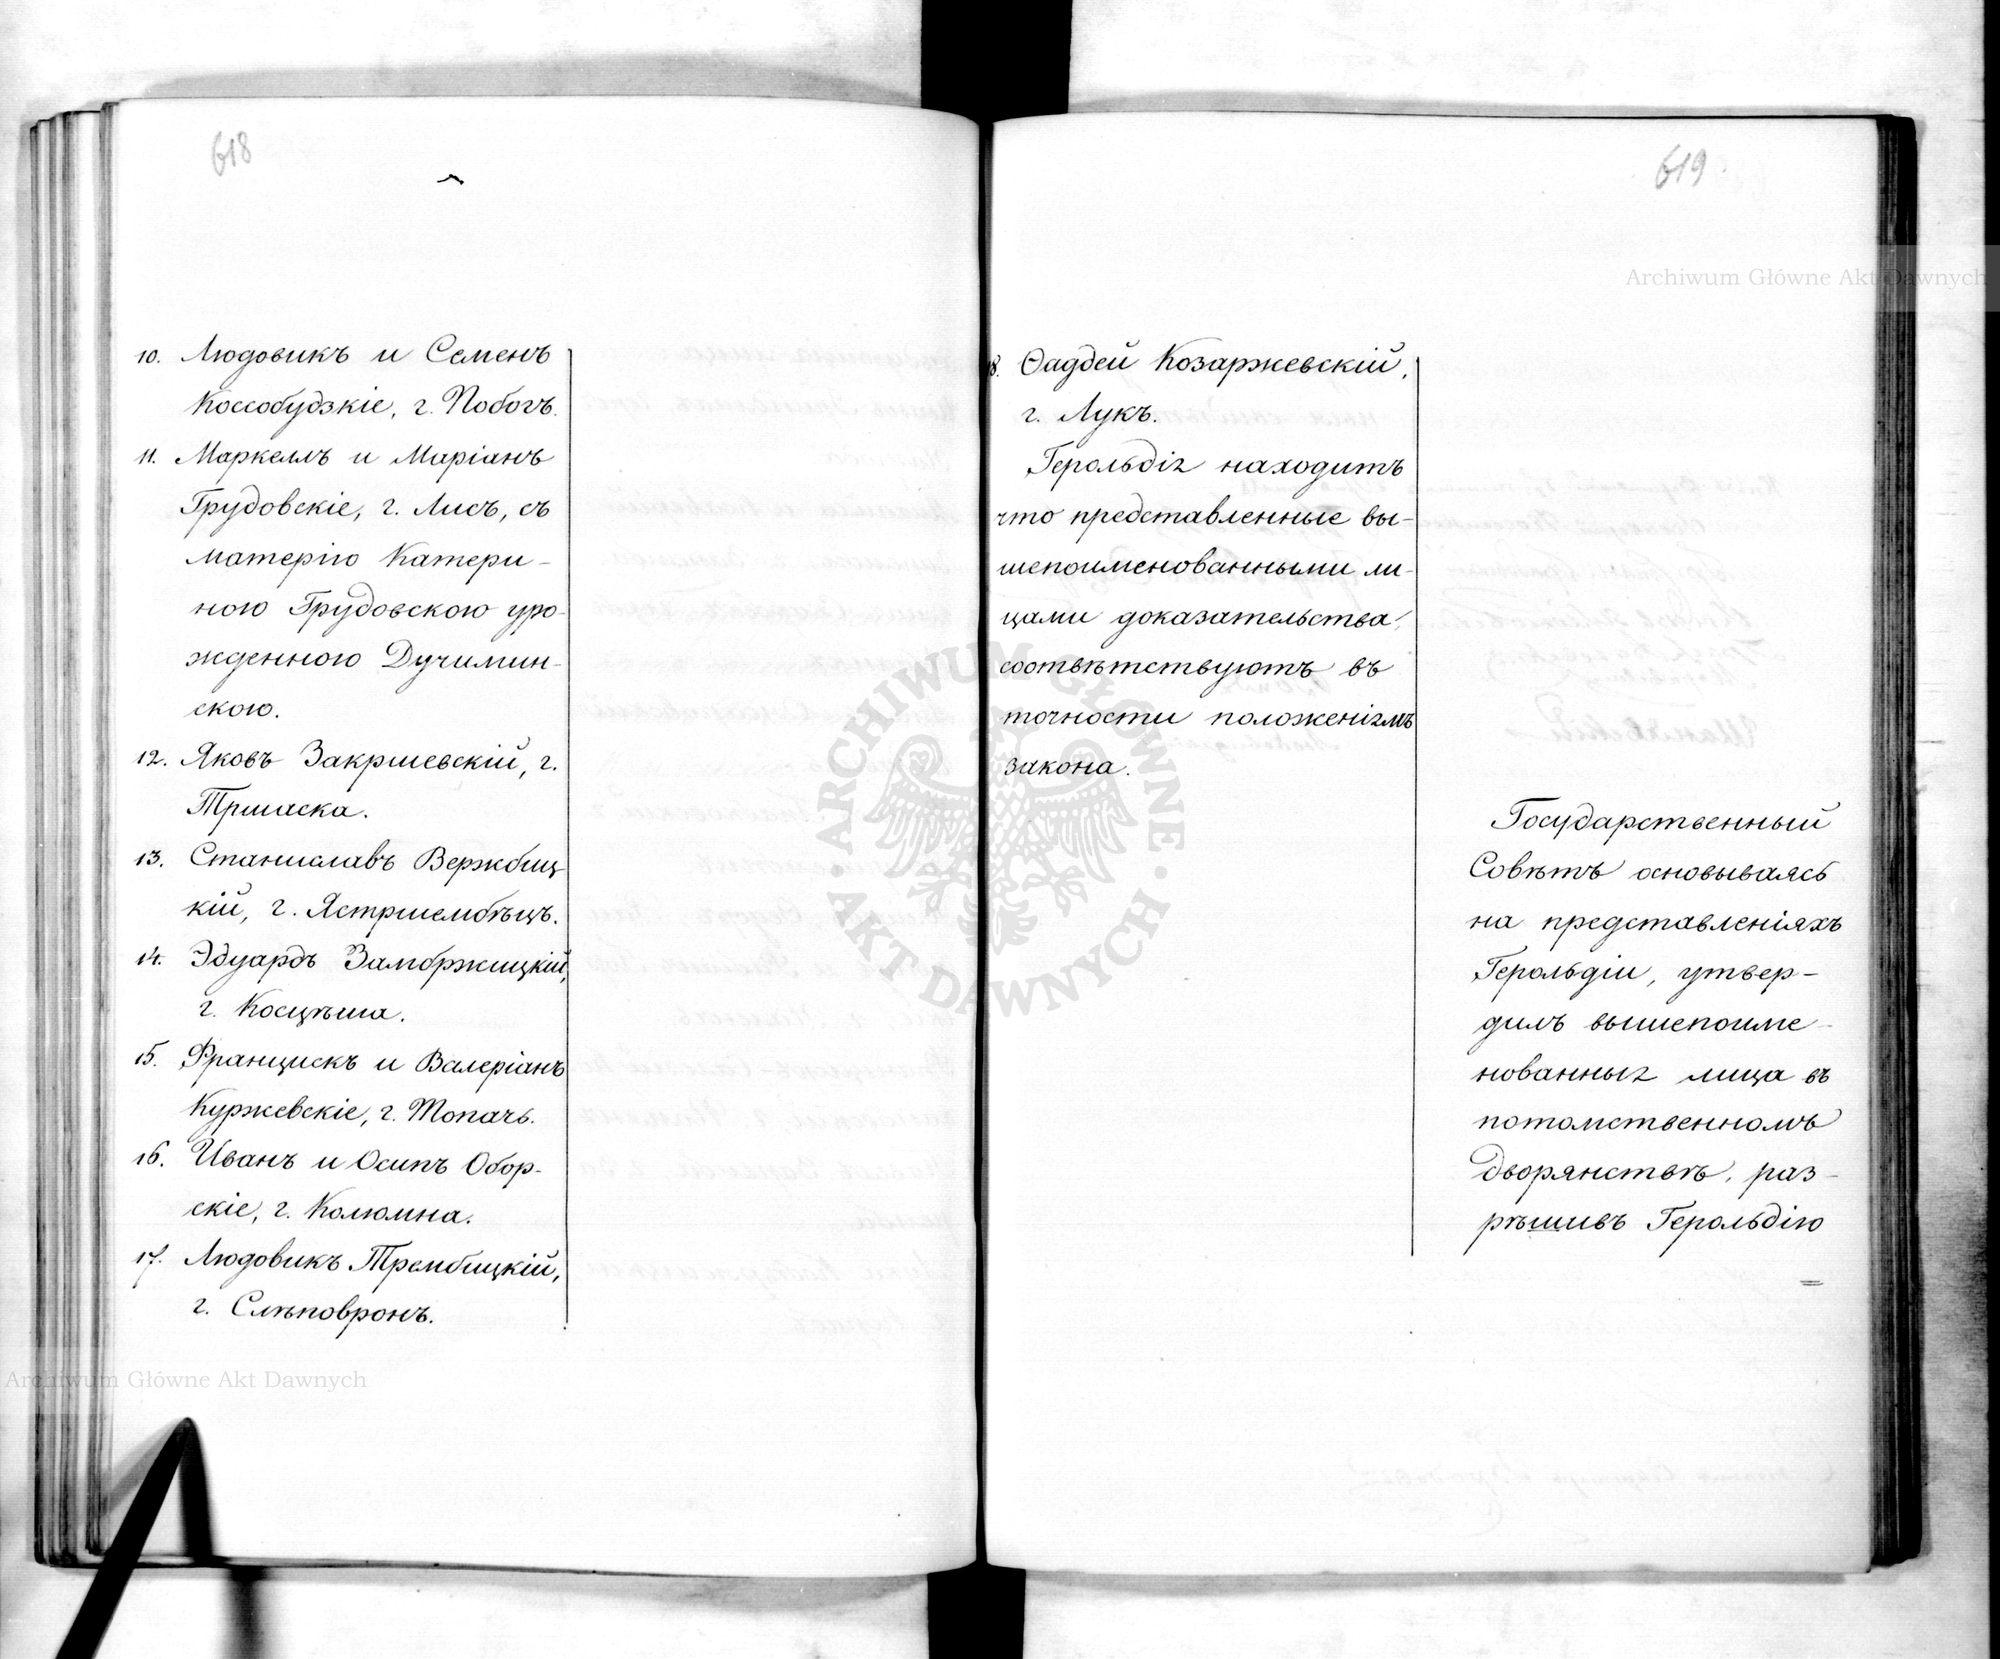 618
10. Людовикъ и Семенъ
Коссобудзкіе, г. Побогъ.
11. Маркеллъ и Маріанъ
Грудовскіе, г. Лисъ, съ
матерію Катери-
ною Грудовскою уро-
жденною Дучимин-
скою.
12. Яковъ Закршевскій, г.
Тршаска.
13. Станиславъ Вержбиц
кій, г. Ястршембѣцъ.
14. Эдуардъ Замбржицкій,
г. Косцѣша.
15. Францискъ и Валеріанъ
Куржевскіе, г. Топачъ.
16. Иванъ и Осипъ Обор-
скіе, г. Колюмна.
17. Людовикъ Трембицкій,
г. Слѣповронъ.
619
8. Ѳаддей Козаржевскій,
г. Лукъ.
Герольдія находитъ
что представленные вы-
шепоименованными ли-
цами доказательства,
соотвѣтствуютъ въ
точности положеніямъ
закона.
Государственный
Совѣтъ основываясь
на представленіяхъ
Герольдіи, утвер-
дилъ вышепоиме-
нованныя лица въ
потомственномъ
дворянствѣ, раз-
рѣшивъ Герольдію
=
Archiwum Główne Akt Dawnych
Archiwum Główne Akt Dawnych
· ARCHIWUM GŁÓWNE · AKT DAWNYCH